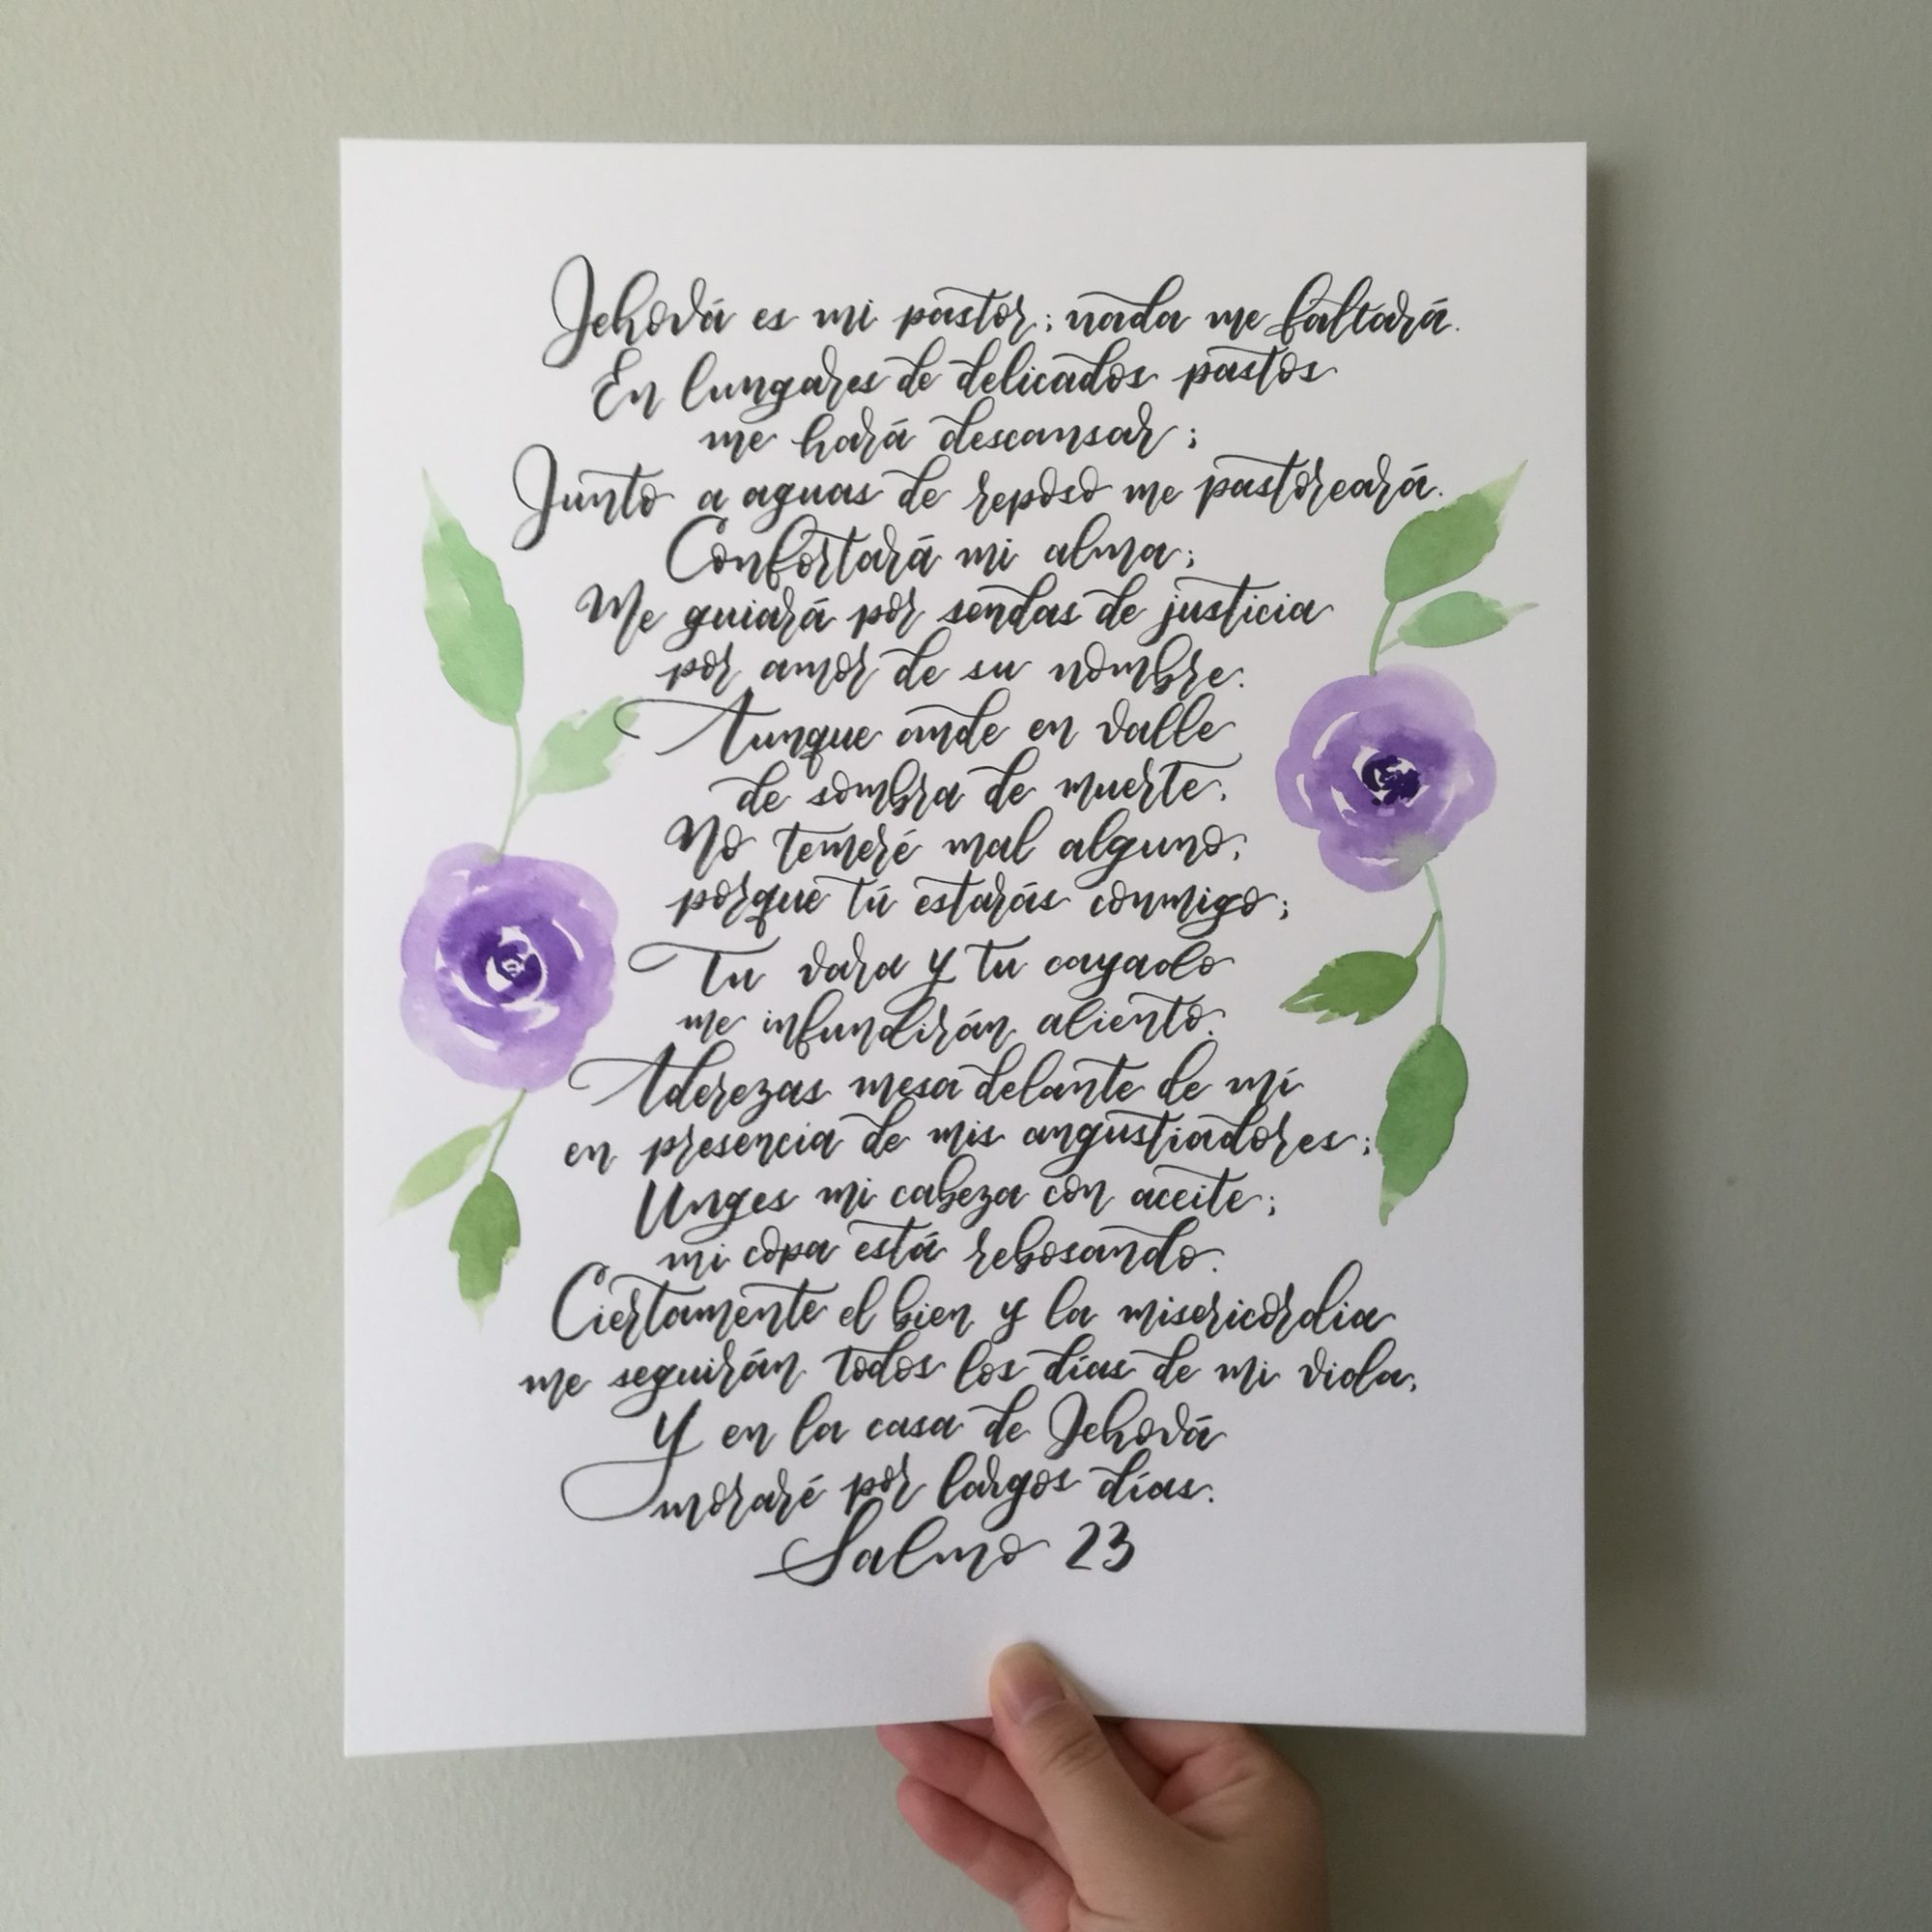 Jehová es mi pastor; nada me faltará.
En lungares de delicados pastos
me hará descansar;
Junto a aguas de reposo me pastoreará.
Confortará mi alma;
Me guiará por sendas de justicia
por amor de su nombre.
Aunque ande en valle
de sombra de muerte,
No temeré mal alguno,
porque tú estarás conmigo;
Tu vara y tu cayado
me infundirán aliento.
Aderezas mesa delante de mí
en presencia de mis angustiadores;
Unges mi cabeza con aceite;
mi copa está rebosando.
Ciertamente el bien y la misericordia
me seguirán todos los días de mi vida,
Y en la casa de Jehová
moraré por largos días.
Salmo 23